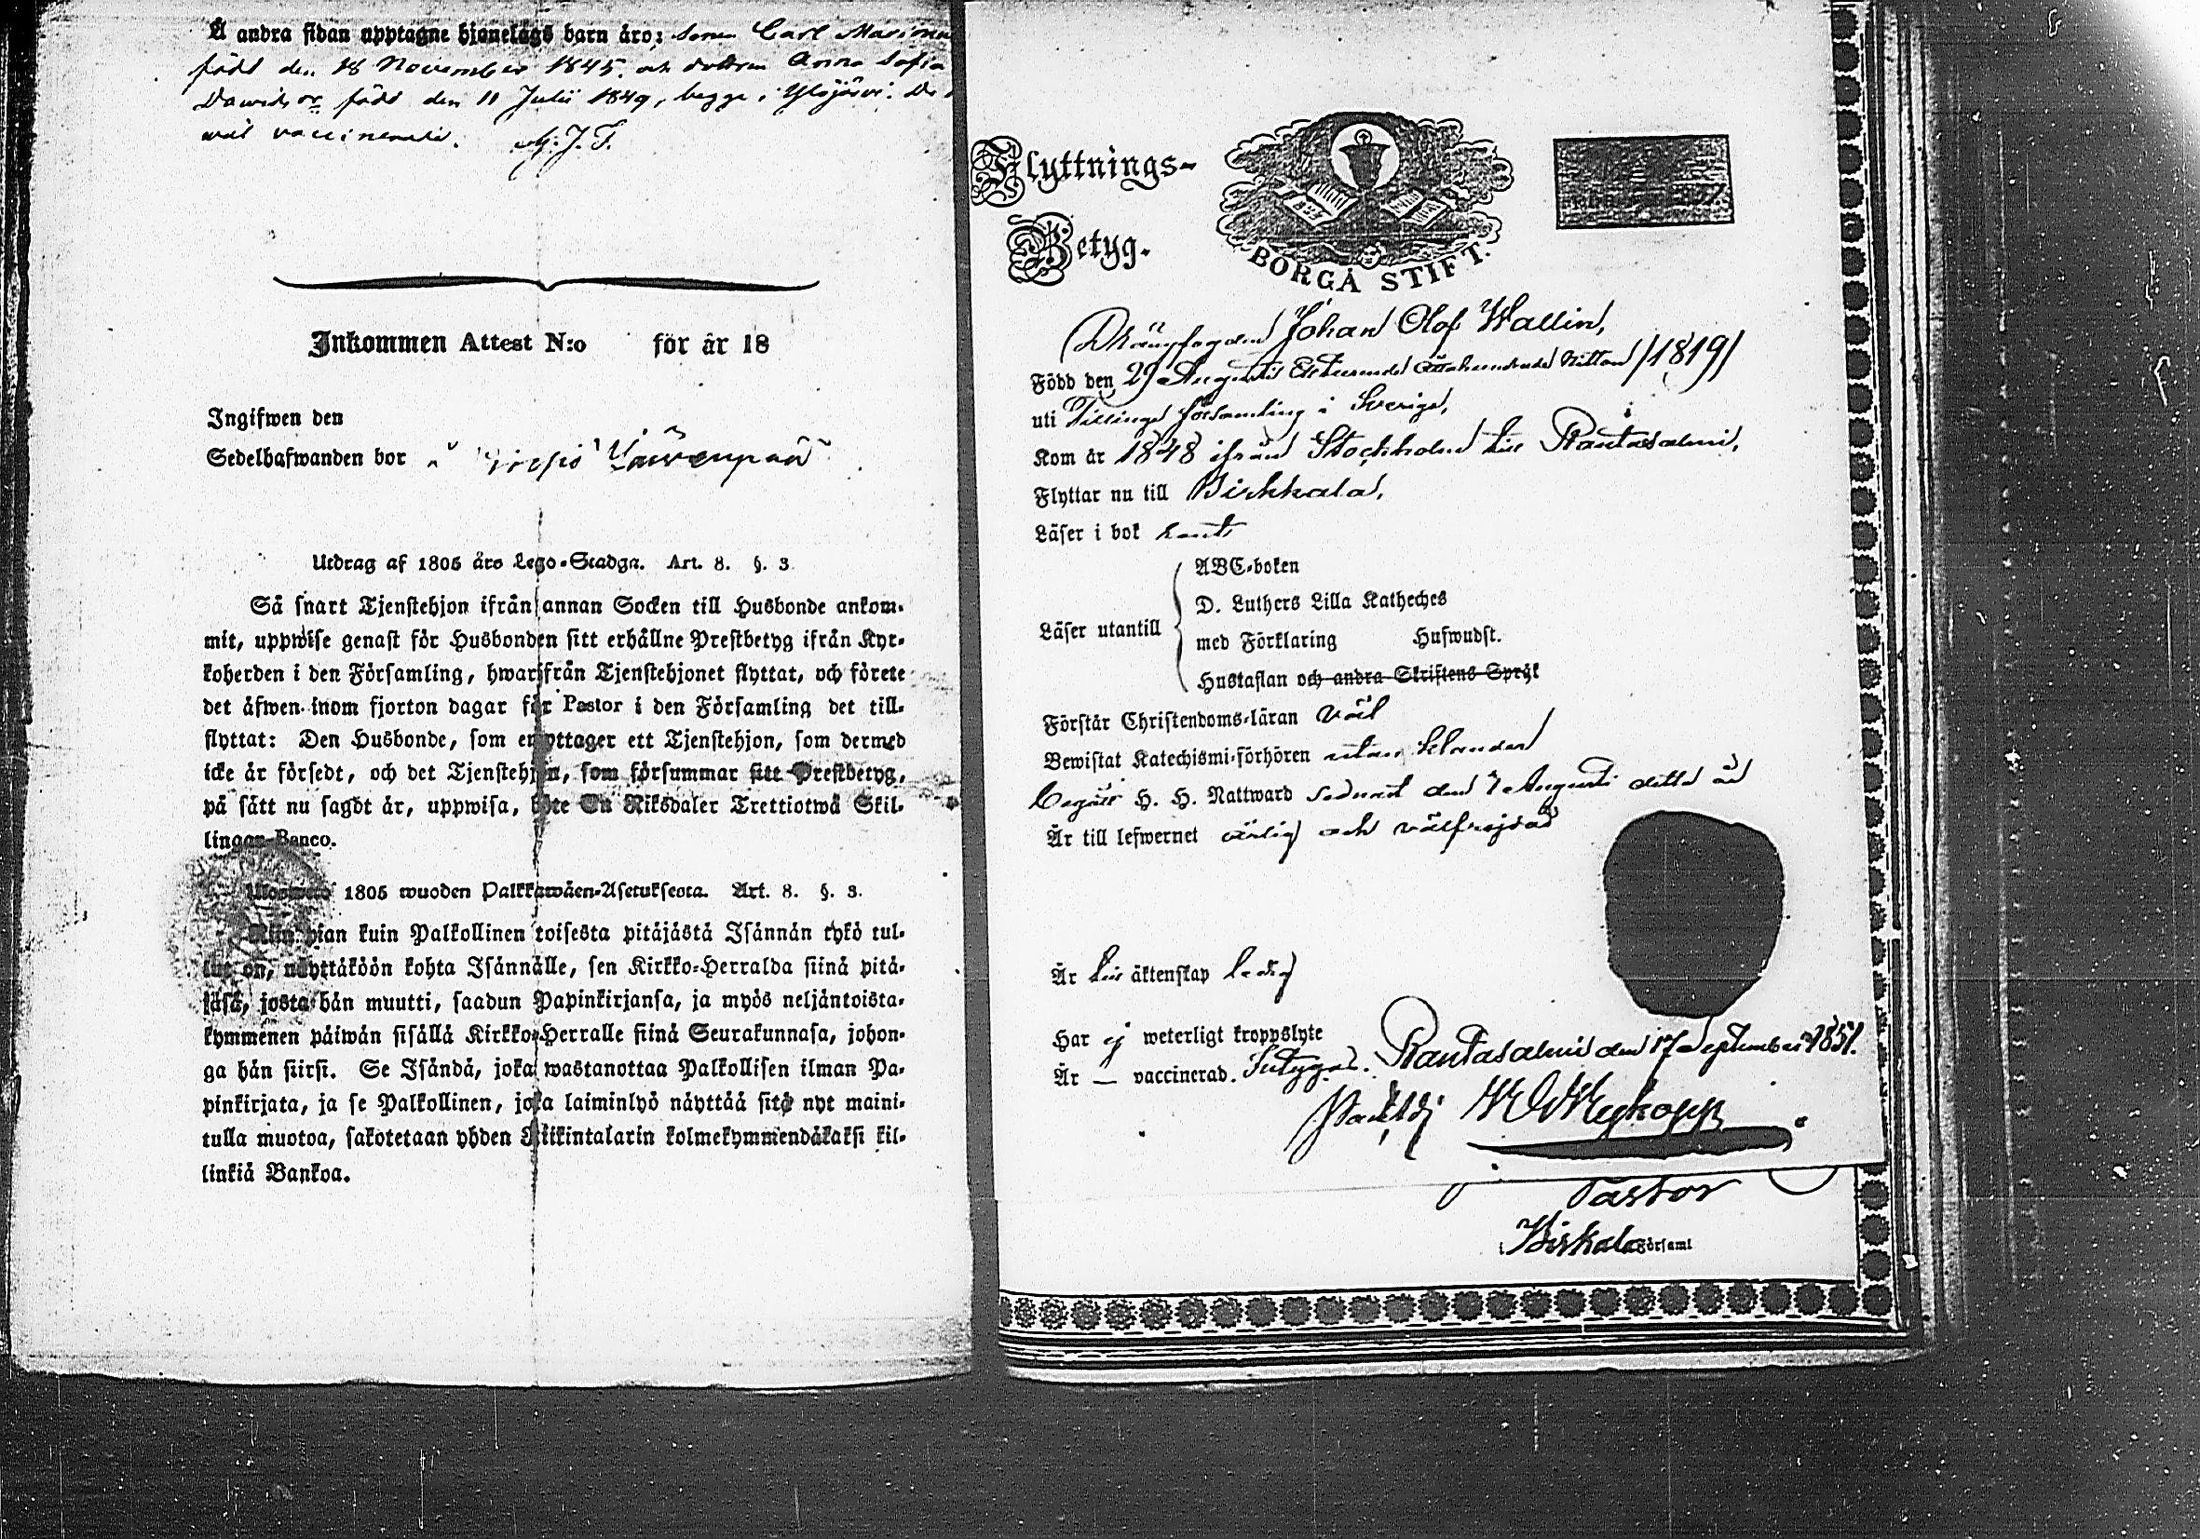 Å andra sidan upptagne hjonelags barn äro: sonen Carl
född den 18 November 1845. och dottren Anna Sofia
född den 11 Julii 1849, begge i Ylöjärvi. De
väl vaccinerade.
Inkommen Attest N:o för år 18
Ingifwen den
Sedelhafwanden bor
Utdrag af 1805 års Lego-Stadga. Art. 8. §. 3
Så snart Tjenstehjon ifrån annan Socken till Husbonde ankom-
mit, uppwise genast för Husbonden sitt erhållne Prestbetyg ifrån Kyr-
koherden i den Församling, hwarifrån Tjenstehjonet flyttat, och förete
det äfwen inom fjorton dagar för Pastor i den Församling det till-
flyttat: Den Husbonde, som emottager ett Tjenstehjon, som dermed
icke är försedt, och det Tjenstehjon, som försummar sitt Prestbetyg,
på sätt nu sagdt är, uppwisa, böte En Riksdaler Trettiotwå Skil-
lingar Banco.
1805 wuoden Palkkawäen-Asetuksesta. Art. 8. §. 3.
Niin pian kuin Palkollinen toisesta pitäjästä Isännän tykö tul-
lut on, näyttäköön kohta Isännälle, sen Kirkko-Herralda siinä pitä-
jäsä, josta hän muutti, saadun Papinkirjansa, ja myös neljäntoista-
kymmenen päiwän sisällä Kirkko-Herralle siinä Seurakunnasa, johon-
ga hän siirsi. Se Isändä, joka wastanottaa Palkollisen ilman Pa-
pinkirjata, ja se Palkollinen, joka laiminlyö näyttää sitä nyt maini-
tulla muotoa, sakotetaan yhden Riikintalarin kolmekymmendäkaksi kil-
linkiä Bankoa.
Flyttnings-
Betyg.
BORGÅ STIFT.
Johan Olof Wallin,
Född den 29 Augusti Ettusende Åttahundrade Nitton /1819/
uti Tillinge församling i Sverige,
Kom år 1848 ifrån Stockholm till Rantasalmi,
Flyttar nu till Birkkala,
Läser i bok
ABC-boken
D. Luthers Lilla Katheches
Läser utantill
med Förklaring Hufwudst.
Hustaflan och andra Skriftens Språk
Förstår Christendoms-läran väl
Bewistat Katechismi-förhören utan klander
Begått H. H. Nattward sednast den 7 Augusti detta år
Är till lefwernet ärlig och välfrejdad
Är till äktenskap ledig
Har ej weterligt kroppslyte
Är — vaccinerad. Intygas. Rantasalmi den 17 September 1851.
Pastor
i Birkala Församl